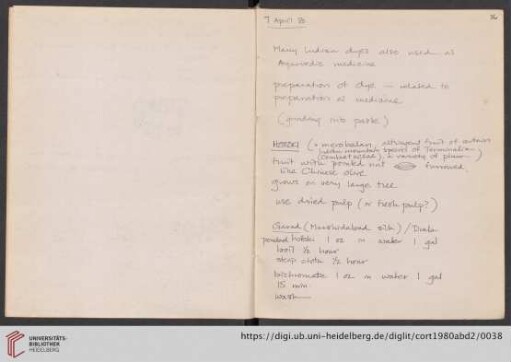 7 April 80
Many Indian dyes also used as
Ayurvedic medicine
preparation of dye — related to
preparation of medicine
(grinding into paste)
HOTOKI (= myrobalan, astringent fruit of certain
Indian mountain species of Terminalia
(Combretaceae), & variety of plum)
fruit with pointed nut furrowed,
like Chinese olive
grows on very large tree
use dried pulp (or fresh pulp?)
Garad (Murshidabad silk) /
powdered hotoki 1 oz in water 1 gal
boil ½ hour
steep cloth ½ hour
bichromate 1 oz in water 1 gal
15 min
wash
UNIVERSITÄTS-
BIBLIOTHEK
HEIDELBERG
https://digi.ub.uni-heidelberg.de/diglit/cort1980abd2/0038